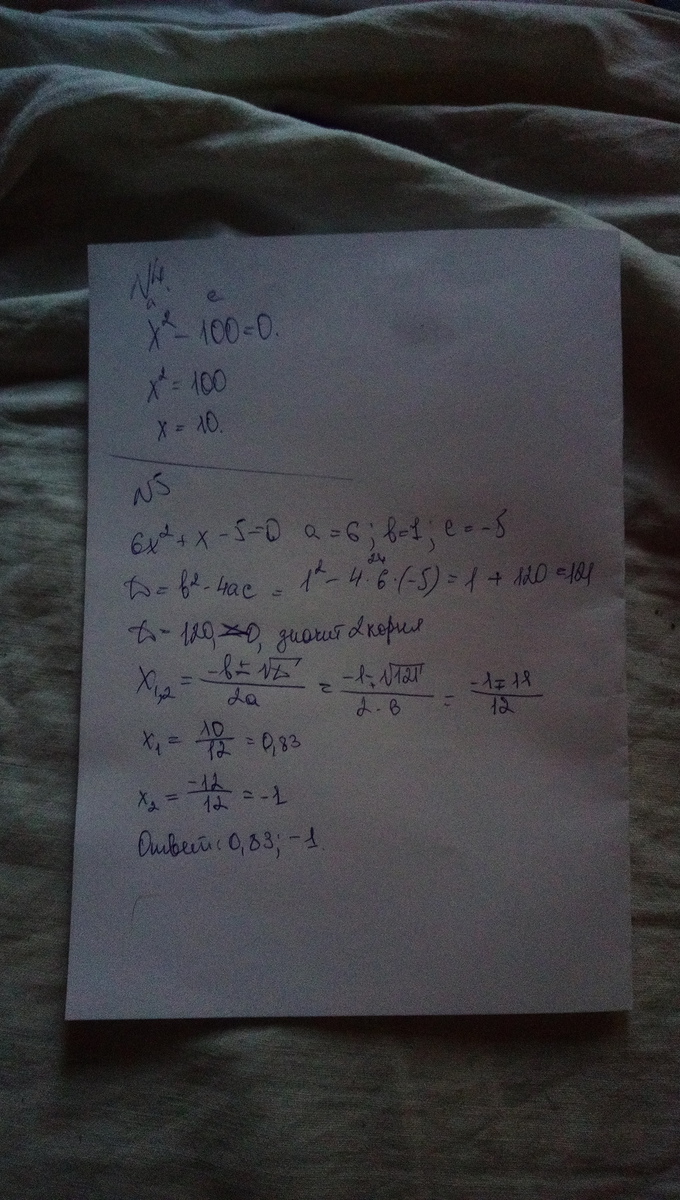 N4.
a c
x² - 100=0.
x² = 100
x = 10.
N5
6x² + x - 5=0 a = 6; b=1; c = -5
D = b² - 4ac = 1² - 4·6·(-5) = 1 + 120 = 121
24
D = 120, >0, значит 2 корня
x₁,₂ = (-b ± √D)/(2a) = (-1 ± √121)/(2·6) = (-1 ± 11)/12
x₁ = 10/12 = 0,83
x₂ = -12/12 = -1
Ответ: 0,83; -1.